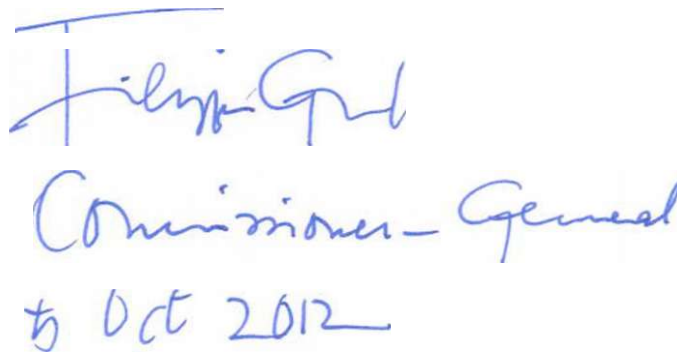 Filippo Grandi
Commissioner-General
5 Oct 2012